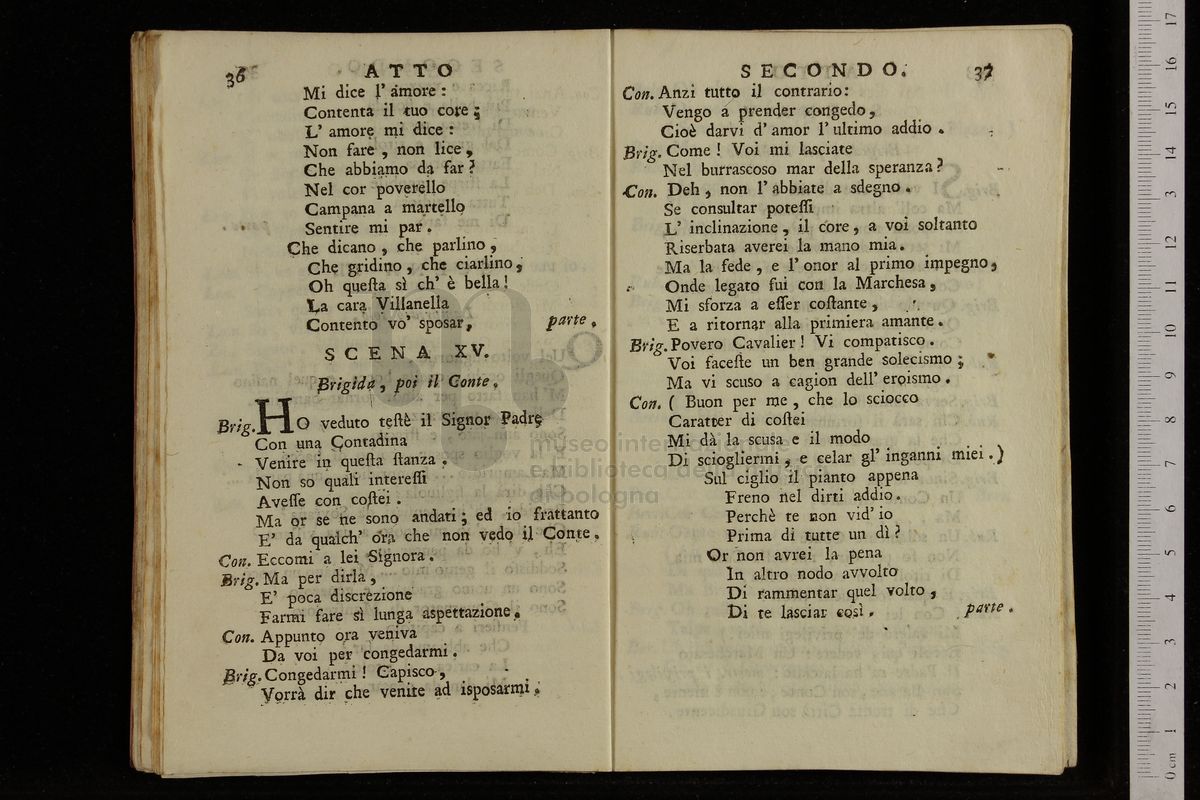 36 ATTO
Mi dice l' amore :
Contenta il tuo core ;
L' amore mi dice :
Non fare , non lice ,
Che abbiamo da far ?
Nel cor poverello
Campana a martello
Sentire mi par .
Che dicano , che parlino ,
Che gridino , che ciarlino ,
Oh queſta sì ch' è bella !
La cara Villanella
Contento vo' sposar , parte .
SCENA XV.
Brigida , poi il Conte .
Brig. HO veduto teſtè il Signor Padre
Con una Contadina
Venire in queſta ſtanza .
Non so quali intereſſi
Aveſſe con coſtei .
Ma or se ne sono andati ; ed io frattanto
E' da qualch' ora che non vedo il Conte .
Con. Eccomi a lei Signora .
Brig. Ma per dirla ,
E' poca discrezione
Farmi fare sì lunga aspettazione .
Con. Appunto ora veniva
Da voi per congedarmi .
Brig. Congedarmi ! Capisco ,
Vorrà dir che venite ad isposarmi .
SECONDO. 37
Con. Anzi tutto il contrario :
Vengo a prender congedo ,
Cioè darvi d' amor l' ultimo addio .
Brig. Come ! Voi mi lasciate
Nel burrascoso mar della speranza ?
Con. Deh , non l' abbiate a sdegno .
Se consultar poteſſi
L' inclinazione , il core , a voi soltanto
Riserbata averei la mano mia .
Ma la fede , e l' onor al primo impegno ,
Onde legato fui con la Marchesa ,
Mi sforza a eſſer coſtante ,
E a ritornar alla primiera amante .
Brig. Povero Cavalier ! Vi compatisco .
Voi faceſte un ben grande solecismo ;
Ma vi scuso a cagion dell' eroismo .
Con. ( Buon per me , che lo sciocco
Caratter di coſtei
Mi dà la scusa e il modo
Di sciogliermi , e celar gl' inganni miei . )
Sul ciglio il pianto appena
Freno nel dirti addio .
Perchè te non vid' io
Prima di tutte un dì ?
Or non avrei la pena
In altro nodo avvolto
Di rammentar quel volto ,
Di te lasciar così . parte .
museo internazionale
e biblioteca della musica
di bologna
17
16
15
14
13
12
11
10
9
8
7
6
5
4
3
2
1
0 cm